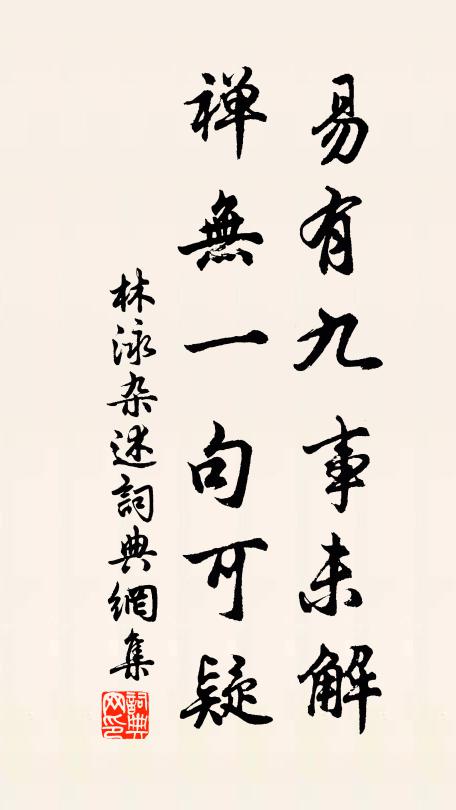 易有九事未解
禅無一句可疑
林泳杂述詞典網集
詞典
网印